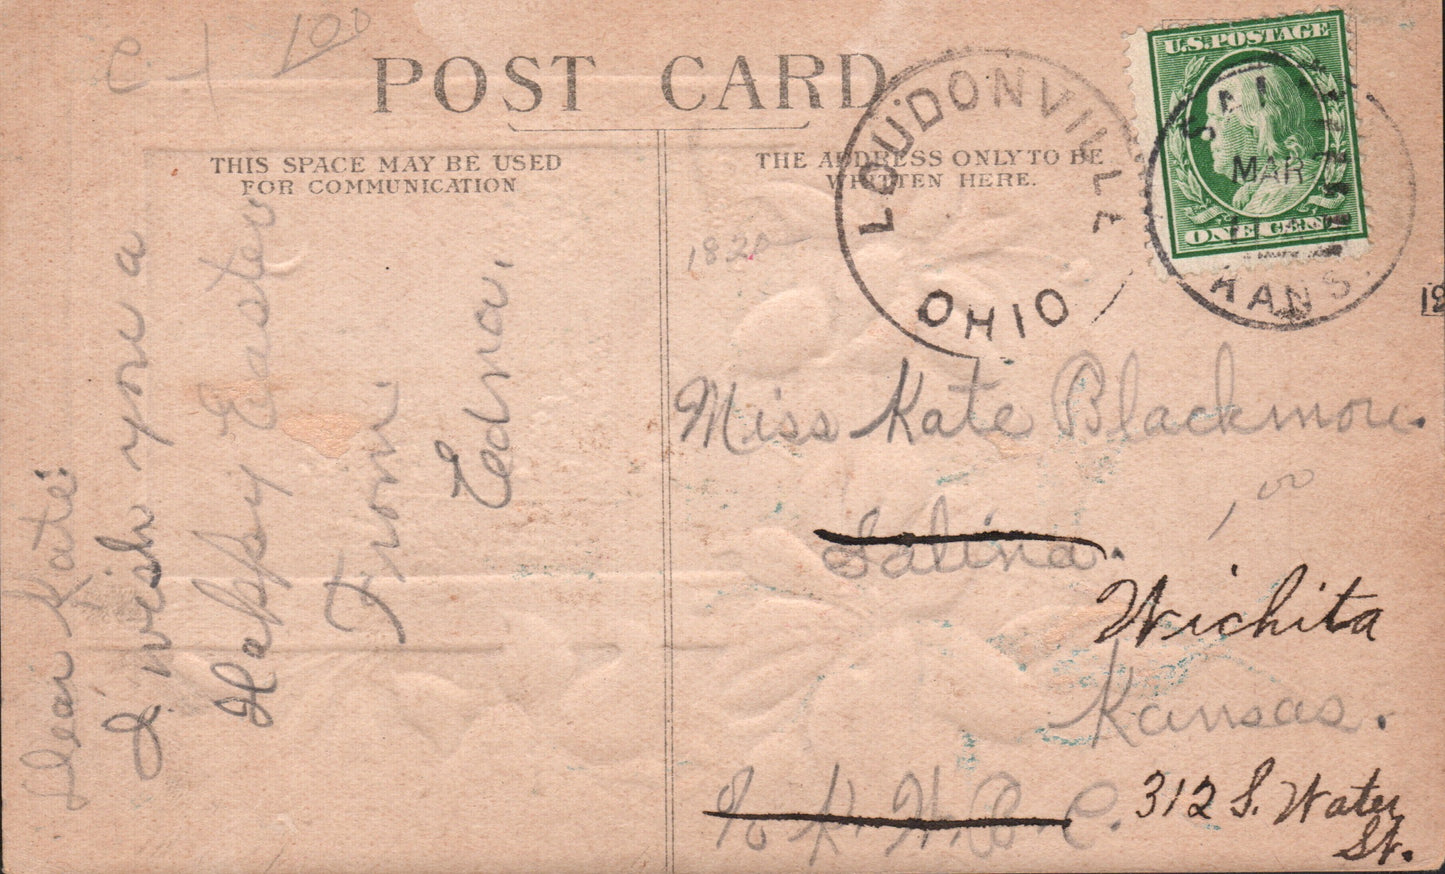 C-1 100
POST CARD
THIS SPACE MAY BE USED
FOR COMMUNICATION
THE ADDRESS ONLY TO BE
WRITTEN HERE.
Dear Kate:
I wish you a
Happy Easter
From
Edna.
1820
LOUDONVILLE
OHIO
U.S. POSTAGE
ONE CENT
SAL
MAR
KANS.
Miss Kate Blackmore.
1.00
Salina.
Wichita
Kansas.
312 S. Water
St.